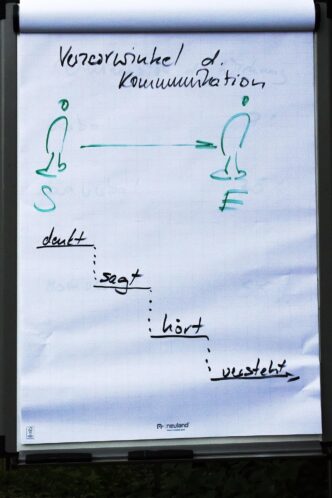 Verzerrwinkel d.
Kommunikation
S
E
denkt
sagt
hört
versteht
neuland